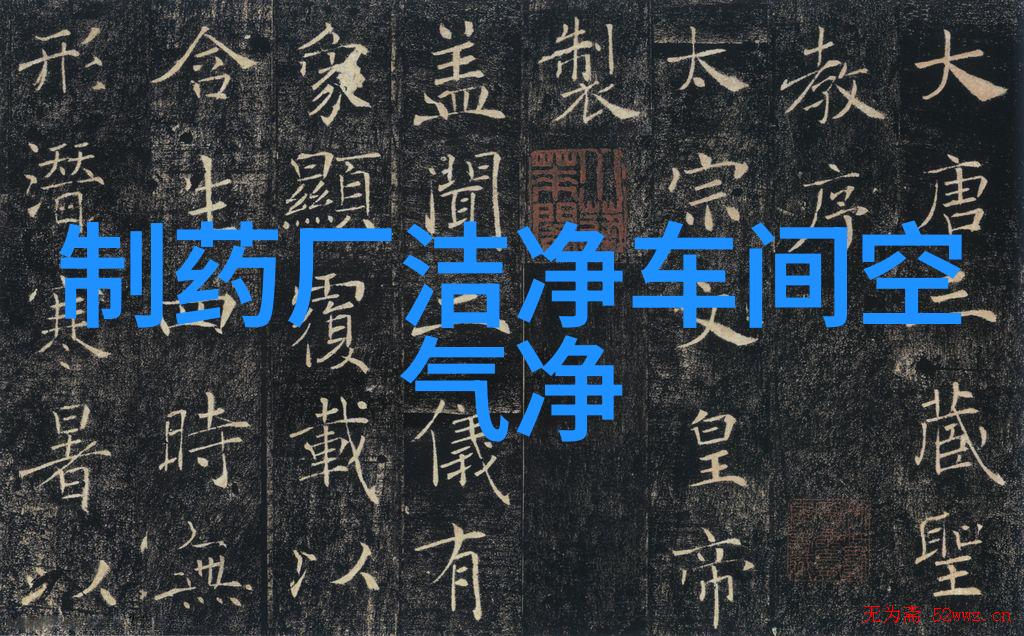 制药厂洁净车间空
气净
大唐三藏聖
教序
太宗文皇帝
製
盖聞二儀有
象顯覆載以
含生四時無
形潛寒暑以
无为斋 52wwz.cn